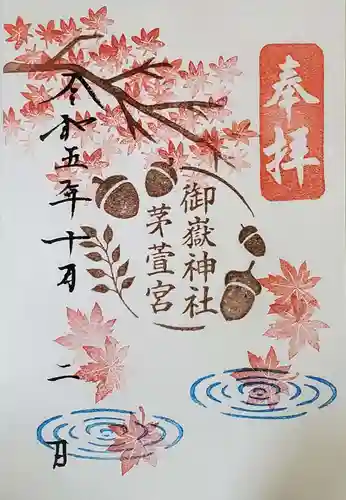 奉拝
御嶽神社
茅萱宮
令和五年十月
二日